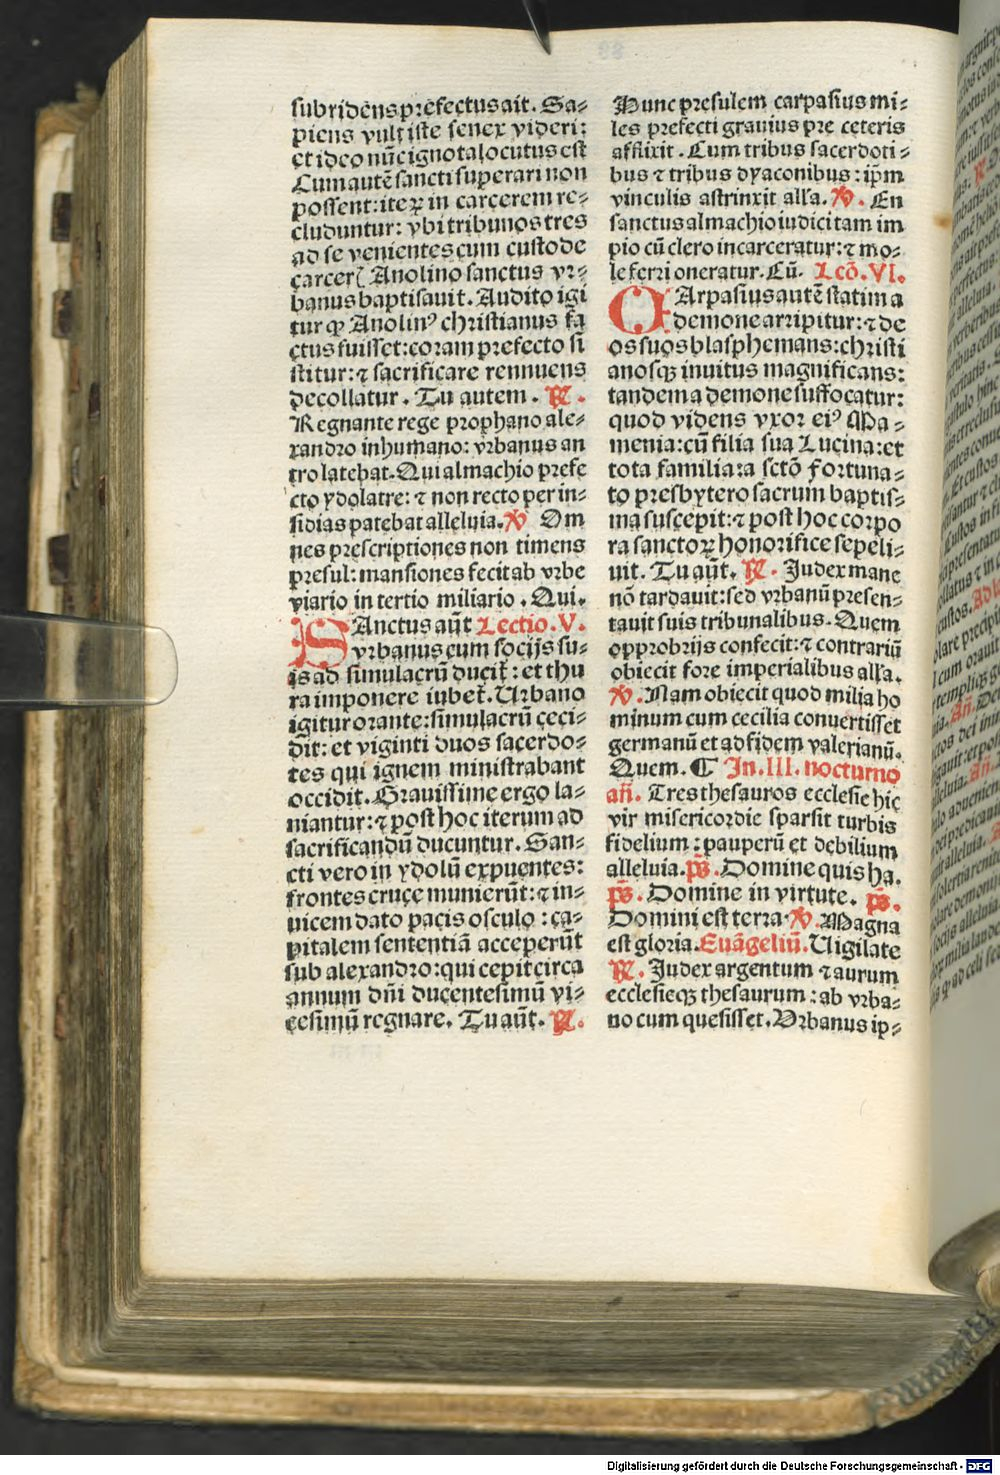 subridēns prefectus ait. Sa⸗
piens vult iste senex videri:
et ideo nūc ignota locutus est
Cum autē sancti superari non
possent: iteꝝ in carcerem re⸗
cluduntur: vbi tribunos tres
ad se venientes cum custode
carcerꝭ Anolino sanctus vr⸗
banus baptisauit. Audito igi
tur ꝙ Anolinꝰ christianus fa
ctus fuisset: coram prefecto si
stitur: ⁊ sacrificare rennuens
decollatur. Tu autem. R.
Regnante rege prophano ale⸗
xandro inhumano: vrbanus an
tro latebat. Qui almachio prefe
cto ydolatre: ⁊ non recto per in⸗
sidias patebat alleluia. V. Om
nes prescriptiones non timens
presul: mansiones fecit ab vrbe
viario in tertio miliario. Qui.
SAnctus aūt Lectio. V.
vrbanus cum socijs su⸗
is ad simulacrū ducit̄: et thu
ra imponere iubet̄. Urbano
igitur orante: simulacrū ceci⸗
dit: et viginti duos sacerdo⸗
tes qui ignem ministrabant
occidit. Grauissime ergo la⸗
niantur: ⁊ post hoc iterum ad
sacrificandū ducuntur. San⸗
cti vero in ydolū expuentes:
frontes cruce munierūt: ⁊ in⸗
uicem dato pacis osculo: ca⸗
pitalem sententiā acceperūt
sub alexandro: qui cepit circa
annum dn̄i ducentesimū vi⸗
cesimū regnare. Tu aūt. R.
Hunc presulem carpasius mi⸗
les prefecti grauius pre ceteris
afflixit. Cum tribus sacerdoti⸗
bus ⁊ tribus dyaconibus: ip̄m
vinculis astrinxit alla. V. En
sanctus almachio iudici tam im
pio cū clero incarceratur: ⁊ mo⸗
le ferri oneratur. Cū. Lcō. VI.
CArpasius autē statim a
demone arripitur: ⁊ de
os suos blasphemans: christi
anosqꝫ inuitus magnificans:
tandem a demone suffocatur:
quod videns vxor eiꝰ Ma⸗
menia: cū filia sua Lucina: et
tota familia: a sctō fortuna⸗
to presbytero sacrum baptis⸗
ma suscepit: ⁊ post hoc corpo
ra sanctoꝝ honorifice sepeli⸗
uit. Tu aūt. R. Iudex mane
nō tardauit: sed vrbanū presen⸗
tauit suis tribunalibus. Quem
opprobrijs confecit: ⁊ contrariū
obiecit fore imperialibus alla.
V. Nam obiecit quod milia ho
minum cum cecilia conuertisset
germanū et ad fidem valerianū.
Quem. ¶ In. III. nocturno
añ. Tres thesauros ecclesie hic
vir misericordie sparsit turbis
fidelium: pauperū et debilium
alleluia. ps̄. Domine quis ha.
ps̄. Domine in virtute. ps̄.
Domini est terra. V. Magna
est gloria. Euāgeliū. Uigilate
R. Iudex argentum ⁊ aurum
ecclesieqꝫ thesaurum: ab vrba⸗
no cum quesisset. Urbanus ip⸗
Digitalisierung gefördert durch die Deutsche Forschungsgemeinschaft - DFG